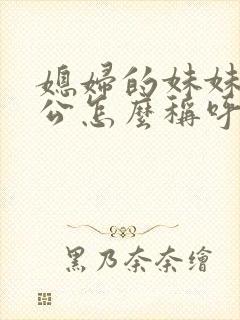 媳婦的妹妹
公怎麼稱呼
黑乃奈奈繪